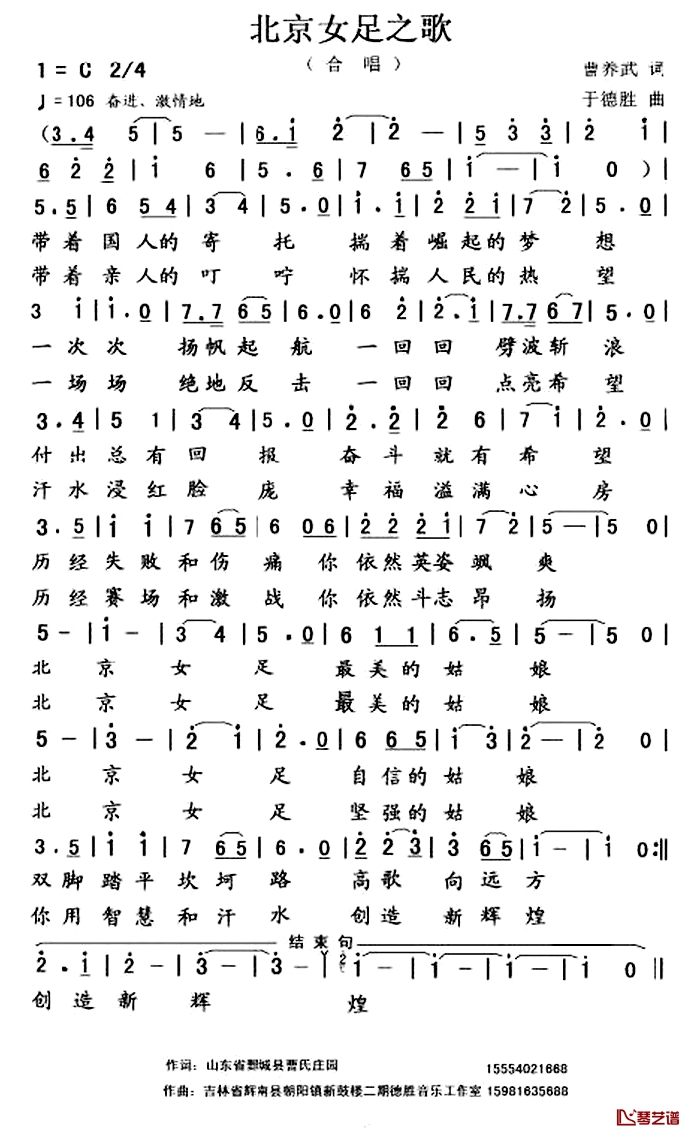 北京女足之歌
（合唱）
1 = C 2/4
曹养武 词
♩= 106 奋进、激情地
于德胜 曲
（3.4 | 5 5 | — | 6.i | 2 2 | — | 5 3 3 | 2 i |
6 2 2 | i 6 | 5.6 | 7 65 | i — | i 0 ）|
5.5 | 6 54 | 3 4 | 5.0 | i.i | 2 2i | 7 2 | 5.0 |
带着国人的寄托 揣着崛起的梦想
带着亲人的叮咛 怀揣人民的热望
3 i | i.0 | 7.7 65 | 6.0 | 6 2 | 2.i | 7.7 67 | 5.0 |
一次次 扬帆起航 一回回 劈波斩浪
一场场 绝地反击 一回回 点亮希望
3.4 | 5 1 | 3 4 | 5.0 | 2.2 | 2 6 | 7 i | 2.0 |
付出总有回报 奋斗就有希望
汗水浸红脸庞 幸福溢满心房
3.5 | i i | 7 65 | 6 06 | 2 22i | 7 2 | 5 — | 5 0 |
历经失败和伤痛你依然英姿飒爽
历经赛场和激战你依然斗志昂扬
5 - | i - | 3 4 | 5.0 | 6 11 | 6.5 | 5 - | 5 0 |
北京女足 最美的姑娘
北京女足 最美的姑娘
5 - | 3 - | 2 i | 2.0 | 6 665 | i 3 | 2 - | 2 0 |
北京女足 自信的姑娘
北京女足 坚强的姑娘
3.5 | i i | 7 65 | 6.0 | 2 23 | 3 65 | i - | i 0 :||
双脚踏平坎坷路 高歌向远方
你用智慧和汗水 创造新辉煌
结束句
2.i | 2 - | 3 - | 3 - | 2 i - | i - | i 0 ||
创造新辉煌
作词：山东省鄄城县曹氏庄园 15554021668
作曲：吉林省辉南县朝阳镇新鼓楼二期德胜音乐工作室 15981635688
琴艺谱